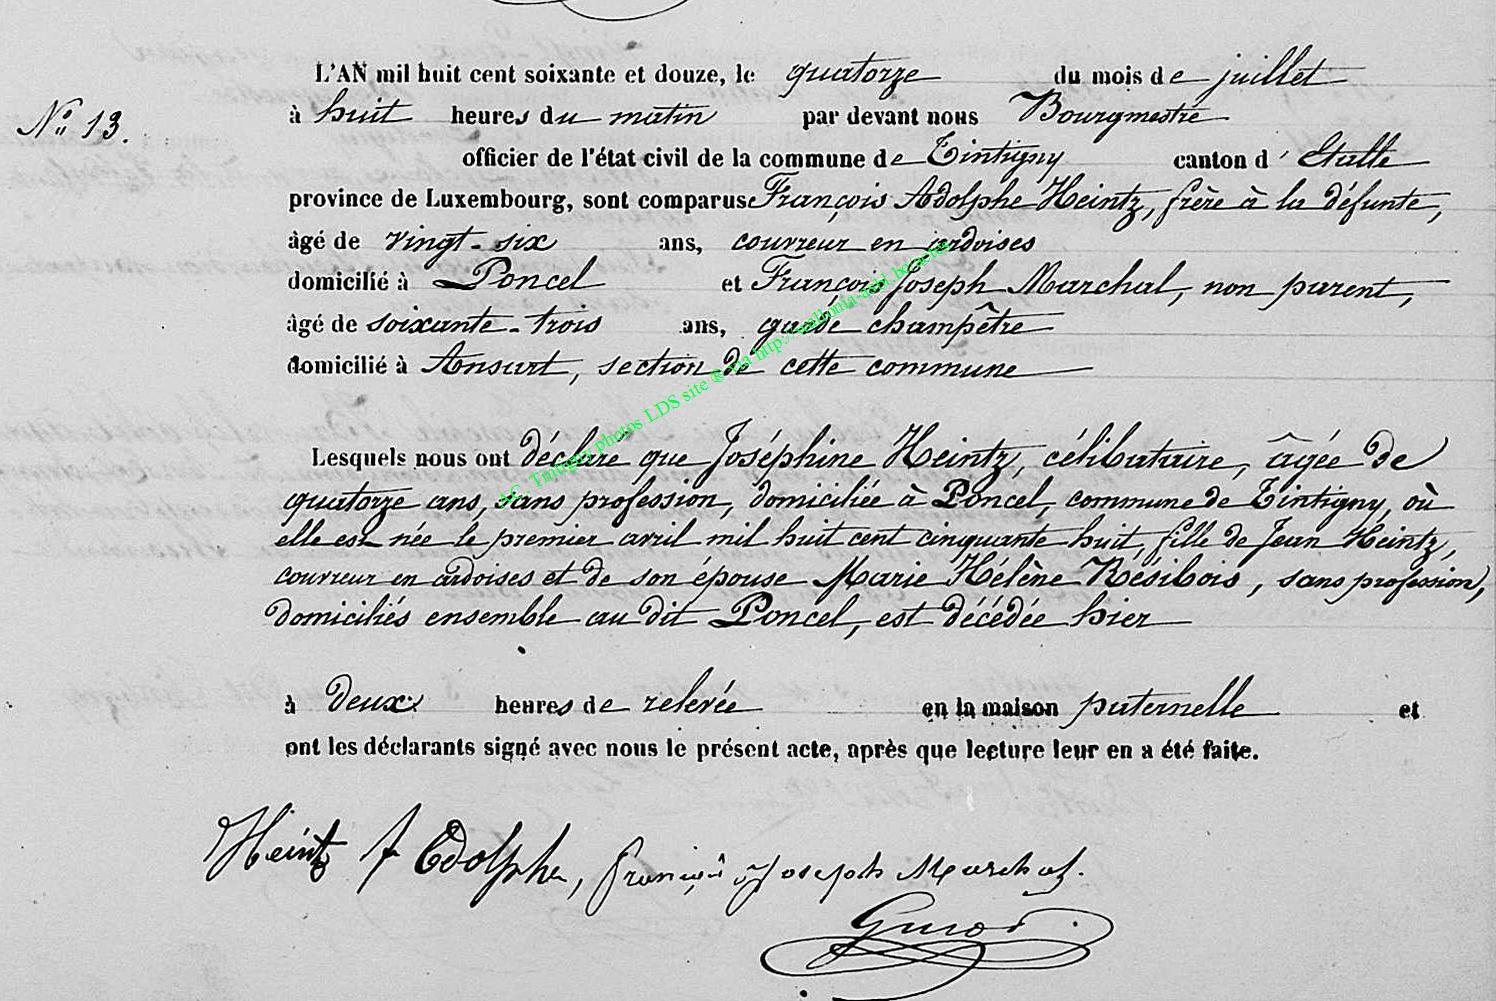 L'AN mil huit cent soixante et douze, le quatorze du mois de juillet
N° 13.
à huit heures du matin par devant nous Bourgmestre
officier de l'état civil de la commune de Tintigny canton d' Etalle
province de Luxembourg, sont comparus François Adolphe Heintz, frère à la défunte,
âgé de vingt-six ans, couvreur en ardoises
domicilié à Poncel et François Joseph Marchal, non parent,
âgé de soixante-trois ans, garde champêtre
domicilié à Ansart, section de cette commune
AC Tintigny photos LDS site via http://wallonia-asbl.be/actes
Lesquels nous ont déclaré que Joséphine Heintz, célibataire, âgée de
quatorze ans, sans profession, domiciliée à Poncel, commune de Tintigny, où
elle est née le premier avril mil huit cent cinquante huit, fille de Jean Heintz,
couvreur en ardoises et de son épouse Marie Hélène Résibois, sans profession,
domiciliés ensemble au dit Poncel, est décédée hier
à deux heures de relevée en la maison paternelle et
ont les déclarants signé avec nous le présent acte, après que lecture leur en a été faite.
Heintz f Adolphe, françois Joseph Marchal.